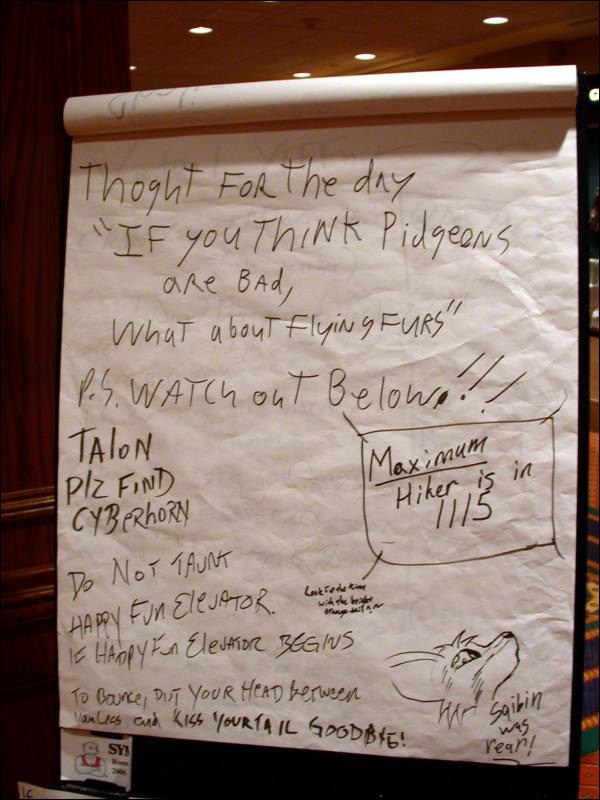 Thoght FOR The day
"IF you ThiNK Pidgeons
are BAd,
What about Flying FURS"
P.S. WATCH out Below!!!
TALON
PlZ FIND
CYBerhorN
Maximum
Hiker is in
1115
Do Not TAUNT
HAPPY FUN ElevATOR.
IF HAPPY Fun ElevATOR BEGINS
TO BOUNCE, PUT YOUR HEAD between
Your Legs and KISS YOUR TAIL GOODBYE!
Look for the
with the bright
orange tail ^.~
Saibin
was
rear!
SYM
Room
2006